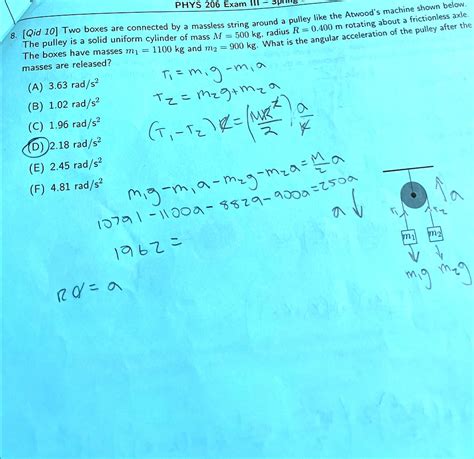 PHYS 206 Exam III - Spring
8. [Qid 10] Two boxes are connected by a massless string around a pulley like the Atwood's machine shown below.
The pulley is a solid uniform cylinder of mass M = 500 kg, radius R = 0.400 m rotating about a frictionless axle.
The boxes have masses m₁ = 1100 kg and m₂ = 900 kg. What is the angular acceleration of the pulley after the
masses are released?
(A) 3.63 rad/s²
(B) 1.02 rad/s²
(C) 1.96 rad/s²
(D) 2.18 rad/s²
(E) 2.45 rad/s²
(F) 4.81 rad/s²
T₁ = m₁g - m₁a
T₂ = m₂g + m₂a
(T₁ - T₂) R = (MR²/2) a/R
m₁g - m₁a - m₂g - m₂a = M/2 a
10791 - 1100a - 8829 - 900a = 250a
1962 =
Rα = a
a
a
T₁ T₂
m₁ m₂
m₁g m₂g